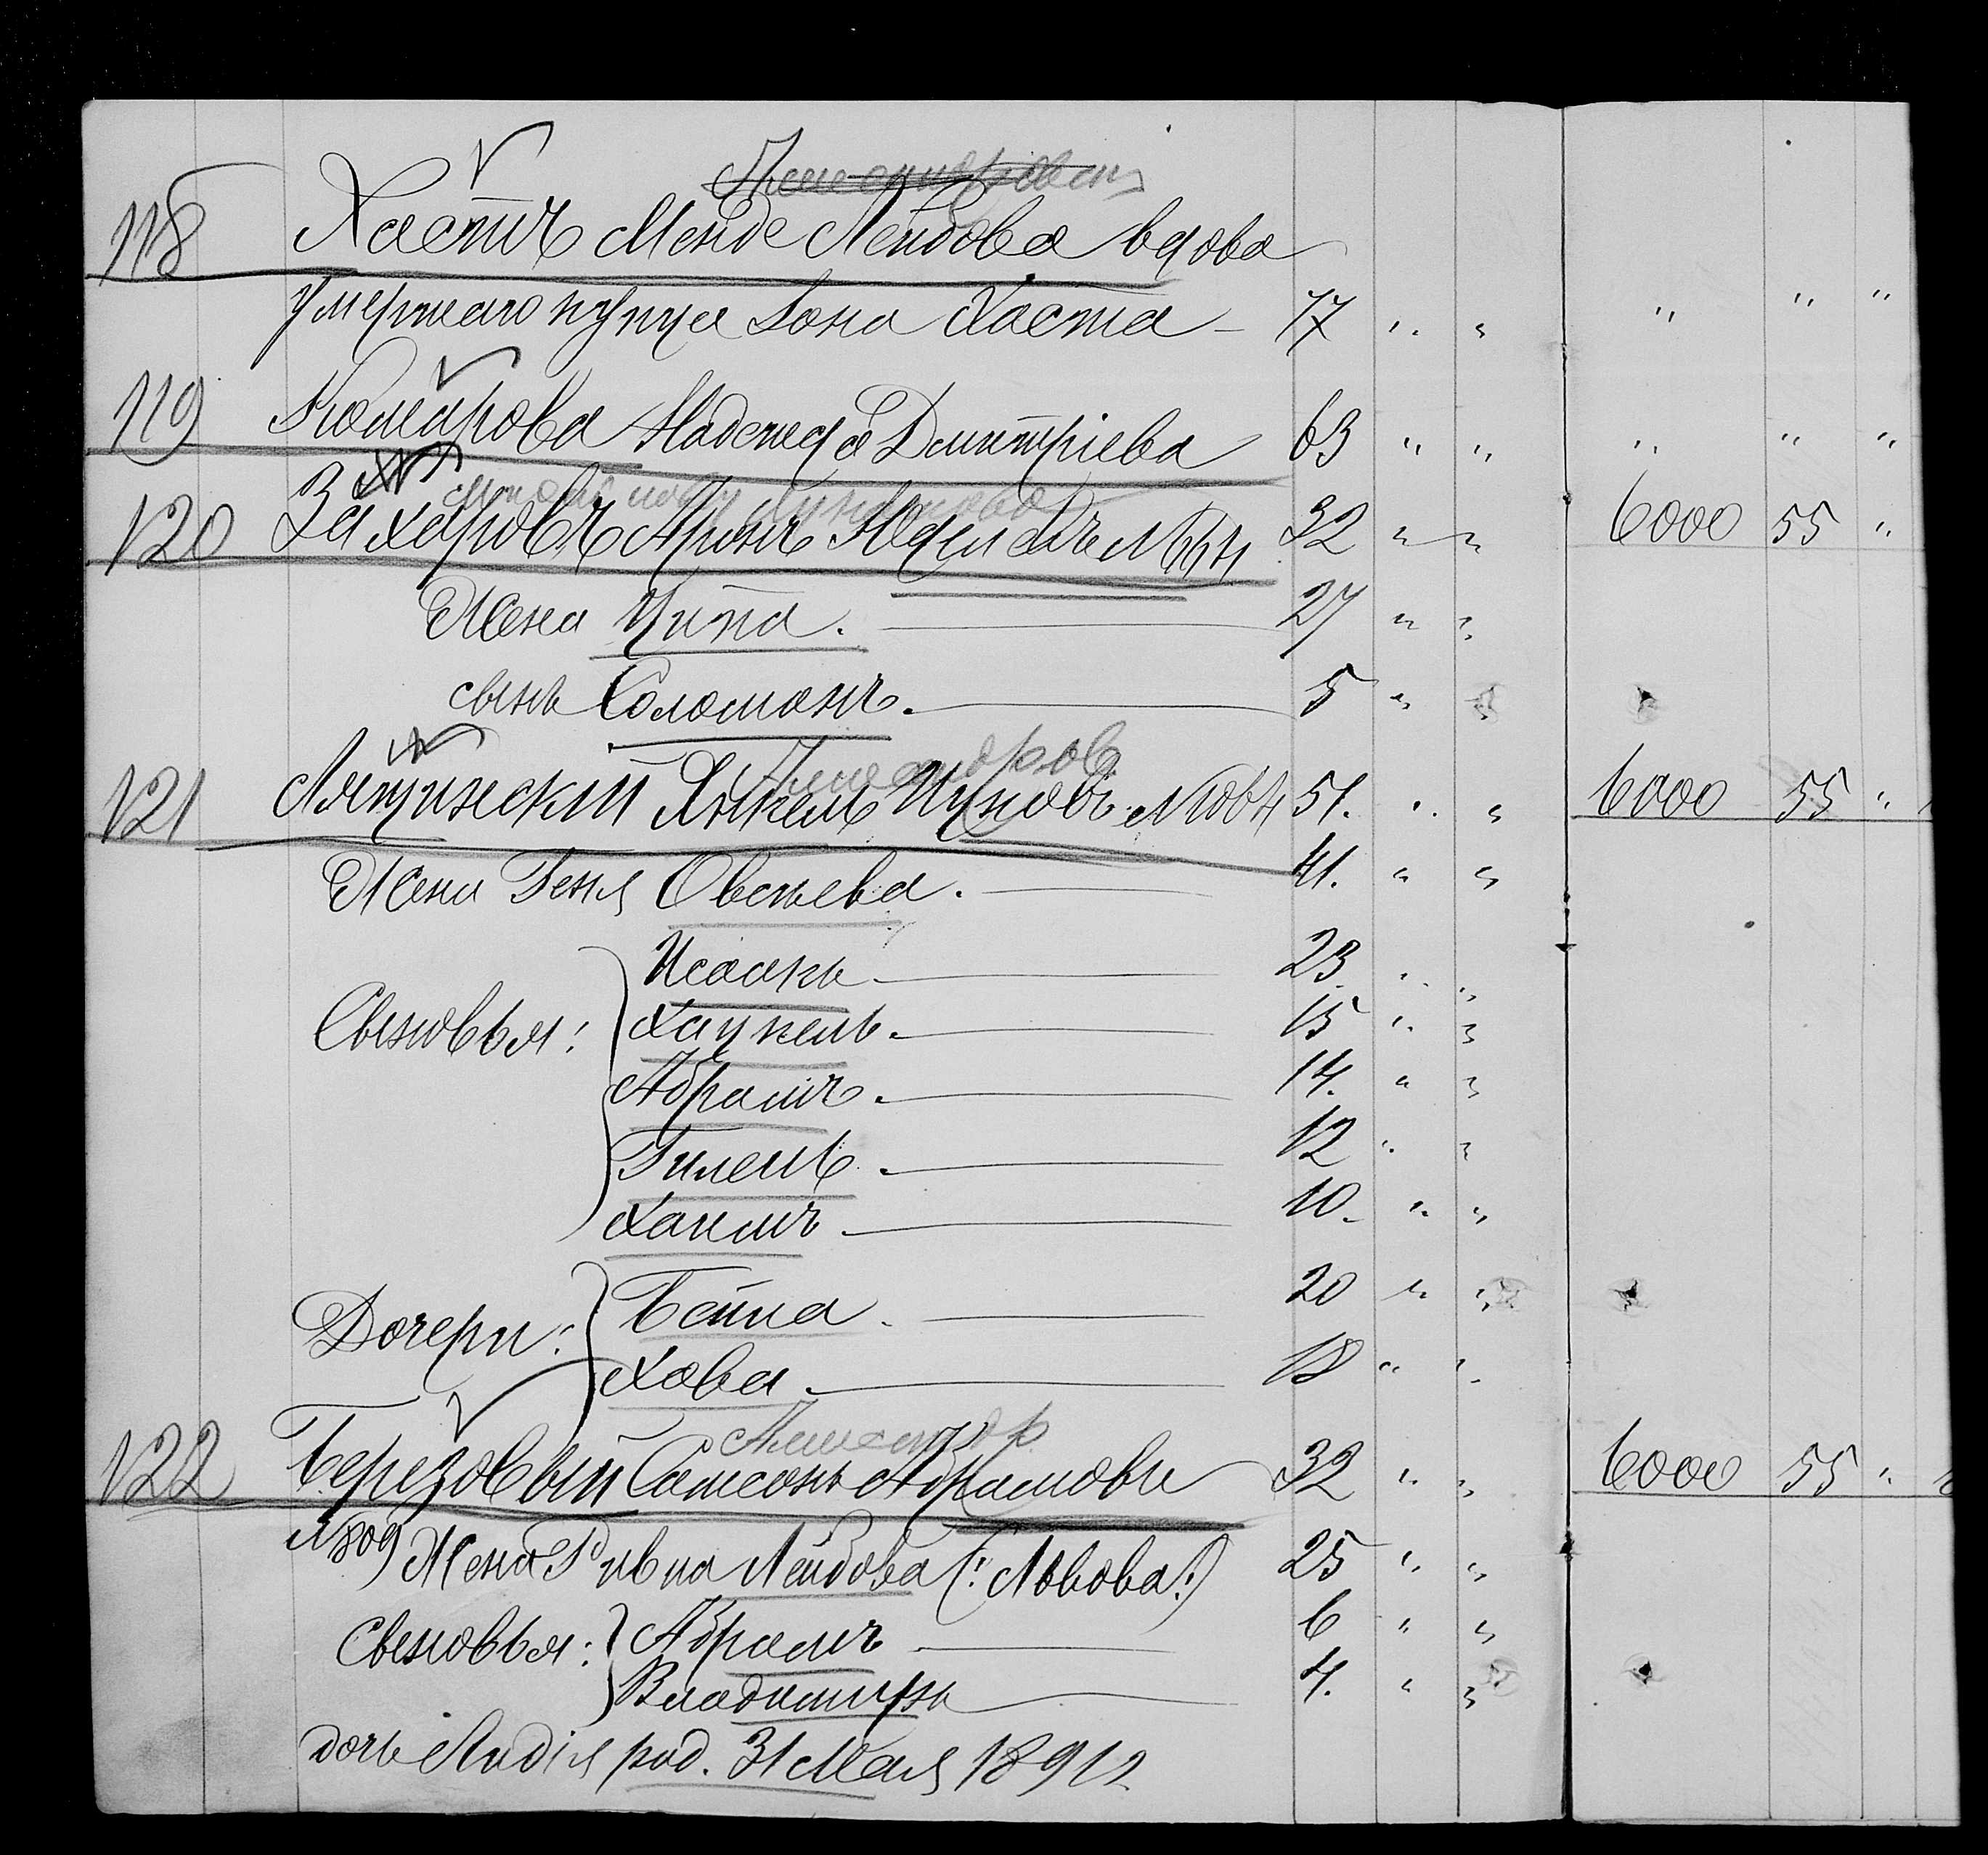 118 Хастъ Менде Лейбова вдова
умершаго купца Сона Хаста - 77 " " " " "
119 Комарова Надежда Дмитріева 63 " " " " "
120 Захаровъ Аронъ № 32 " " 6000 55 "
Жена Ципа. 27 " "
сынъ Соломонъ. 5 " "
121 Янкель Ицковъ № 51. " " 6000 55 "
Жена Геня Овсѣева. 41. " "
Исаакъ 23. " "
Сыновья: Хацкель. 15 " "
Абрамъ. 14. " "
Гилель. 12 " "
Хаимъ 10. " "
Дочери: Бейла. 20 " "
Хова. 18 " "
122 Березовый Самсонъ Абрамовъ 32 " " 6000 55 "
№ 809) Жена Ривка Лейбова (: Львова :) 25 " "
Сыновья: Абрамъ 6 " "
Владимиръ 4. " "
дочь Лидія род. 31 Мая 1891 г.